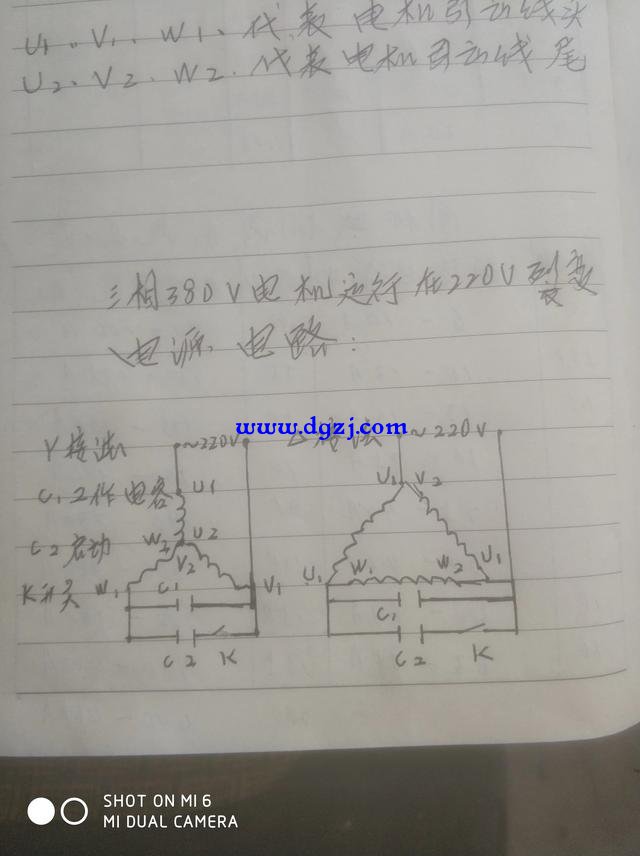 U1、V1、W1、代表 电机引动线头
U2、V2、W2、代表电机引动线尾
三相380V电机运行在220V
电源电路:
www.dgzj.com
Y接法 ~220V △接法 ~220V
C1工作电容 U1 U1 V2
C2启动 W2 U2
V2
K开关 W1 C1 V1 U1 W1 W2 U1
C1
C2 K C2 K
SHOT ON MI 6
MI DUAL CAMERA